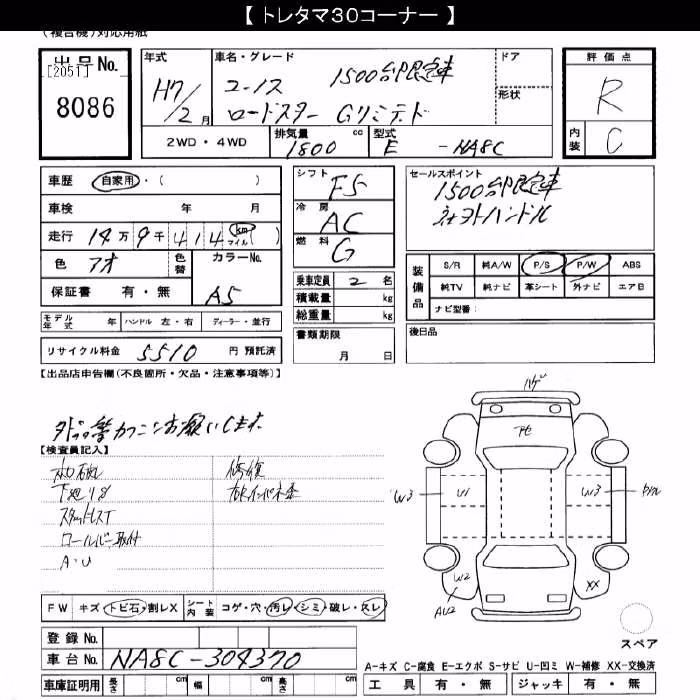 【 トレタマ30コーナー 】
(複合機)対応用紙
出品No. [2051] 8086
年式 H7/2月
車名・グレード ユーノス 1500台限定車
ロードスター Gリミテド
ドア
形状
2WD・4WD 排気量 1800 cc 型式 E -NA8C
評価点 R
内装 C
車歴 自家用・( )
車検 年 月
走行 14万 9千 414 km マイル ( )
色 アオ 色替 カラーNo.
保証書 有・無 A5
モデル年式 年 ハンドル 左・右 ディーラー・並行
リサイクル料金 5510 円 預託済
シフト F5
冷房 AC
燃料 G
乗車定員 2 名
積載量 kg
総重量 kg
書類期限 月 日
セールスポイント
1500台限定車
ハンドル
装備品 S/R 純A/W P/S P/W ABS
純TV 純ナビ 革シート 外ナビ エアB
ナビ型番:
後日品
【出品店申告欄(不良箇所・欠品・注意事項等)】
お願いします
【検査員記入】
下廻りS
スタットレスT
ロールバー取付
A・U
修復
ハゲ
下セ
W3
U1
W3
W2
AU2
XX
FW キズ・トビ石・割レX シート内装 コゲ・穴・汚レ・シミ・破レ・スレ
スペア
登録No.
車台No. NA8C-304370
A-キズ C-腐食 E-エクボ S-サビ U-凹ミ W-補修 XX-交換済
車庫証明用 長さ cm 幅 cm 高さ cm
工具 有・無 ジャッキ 有・無